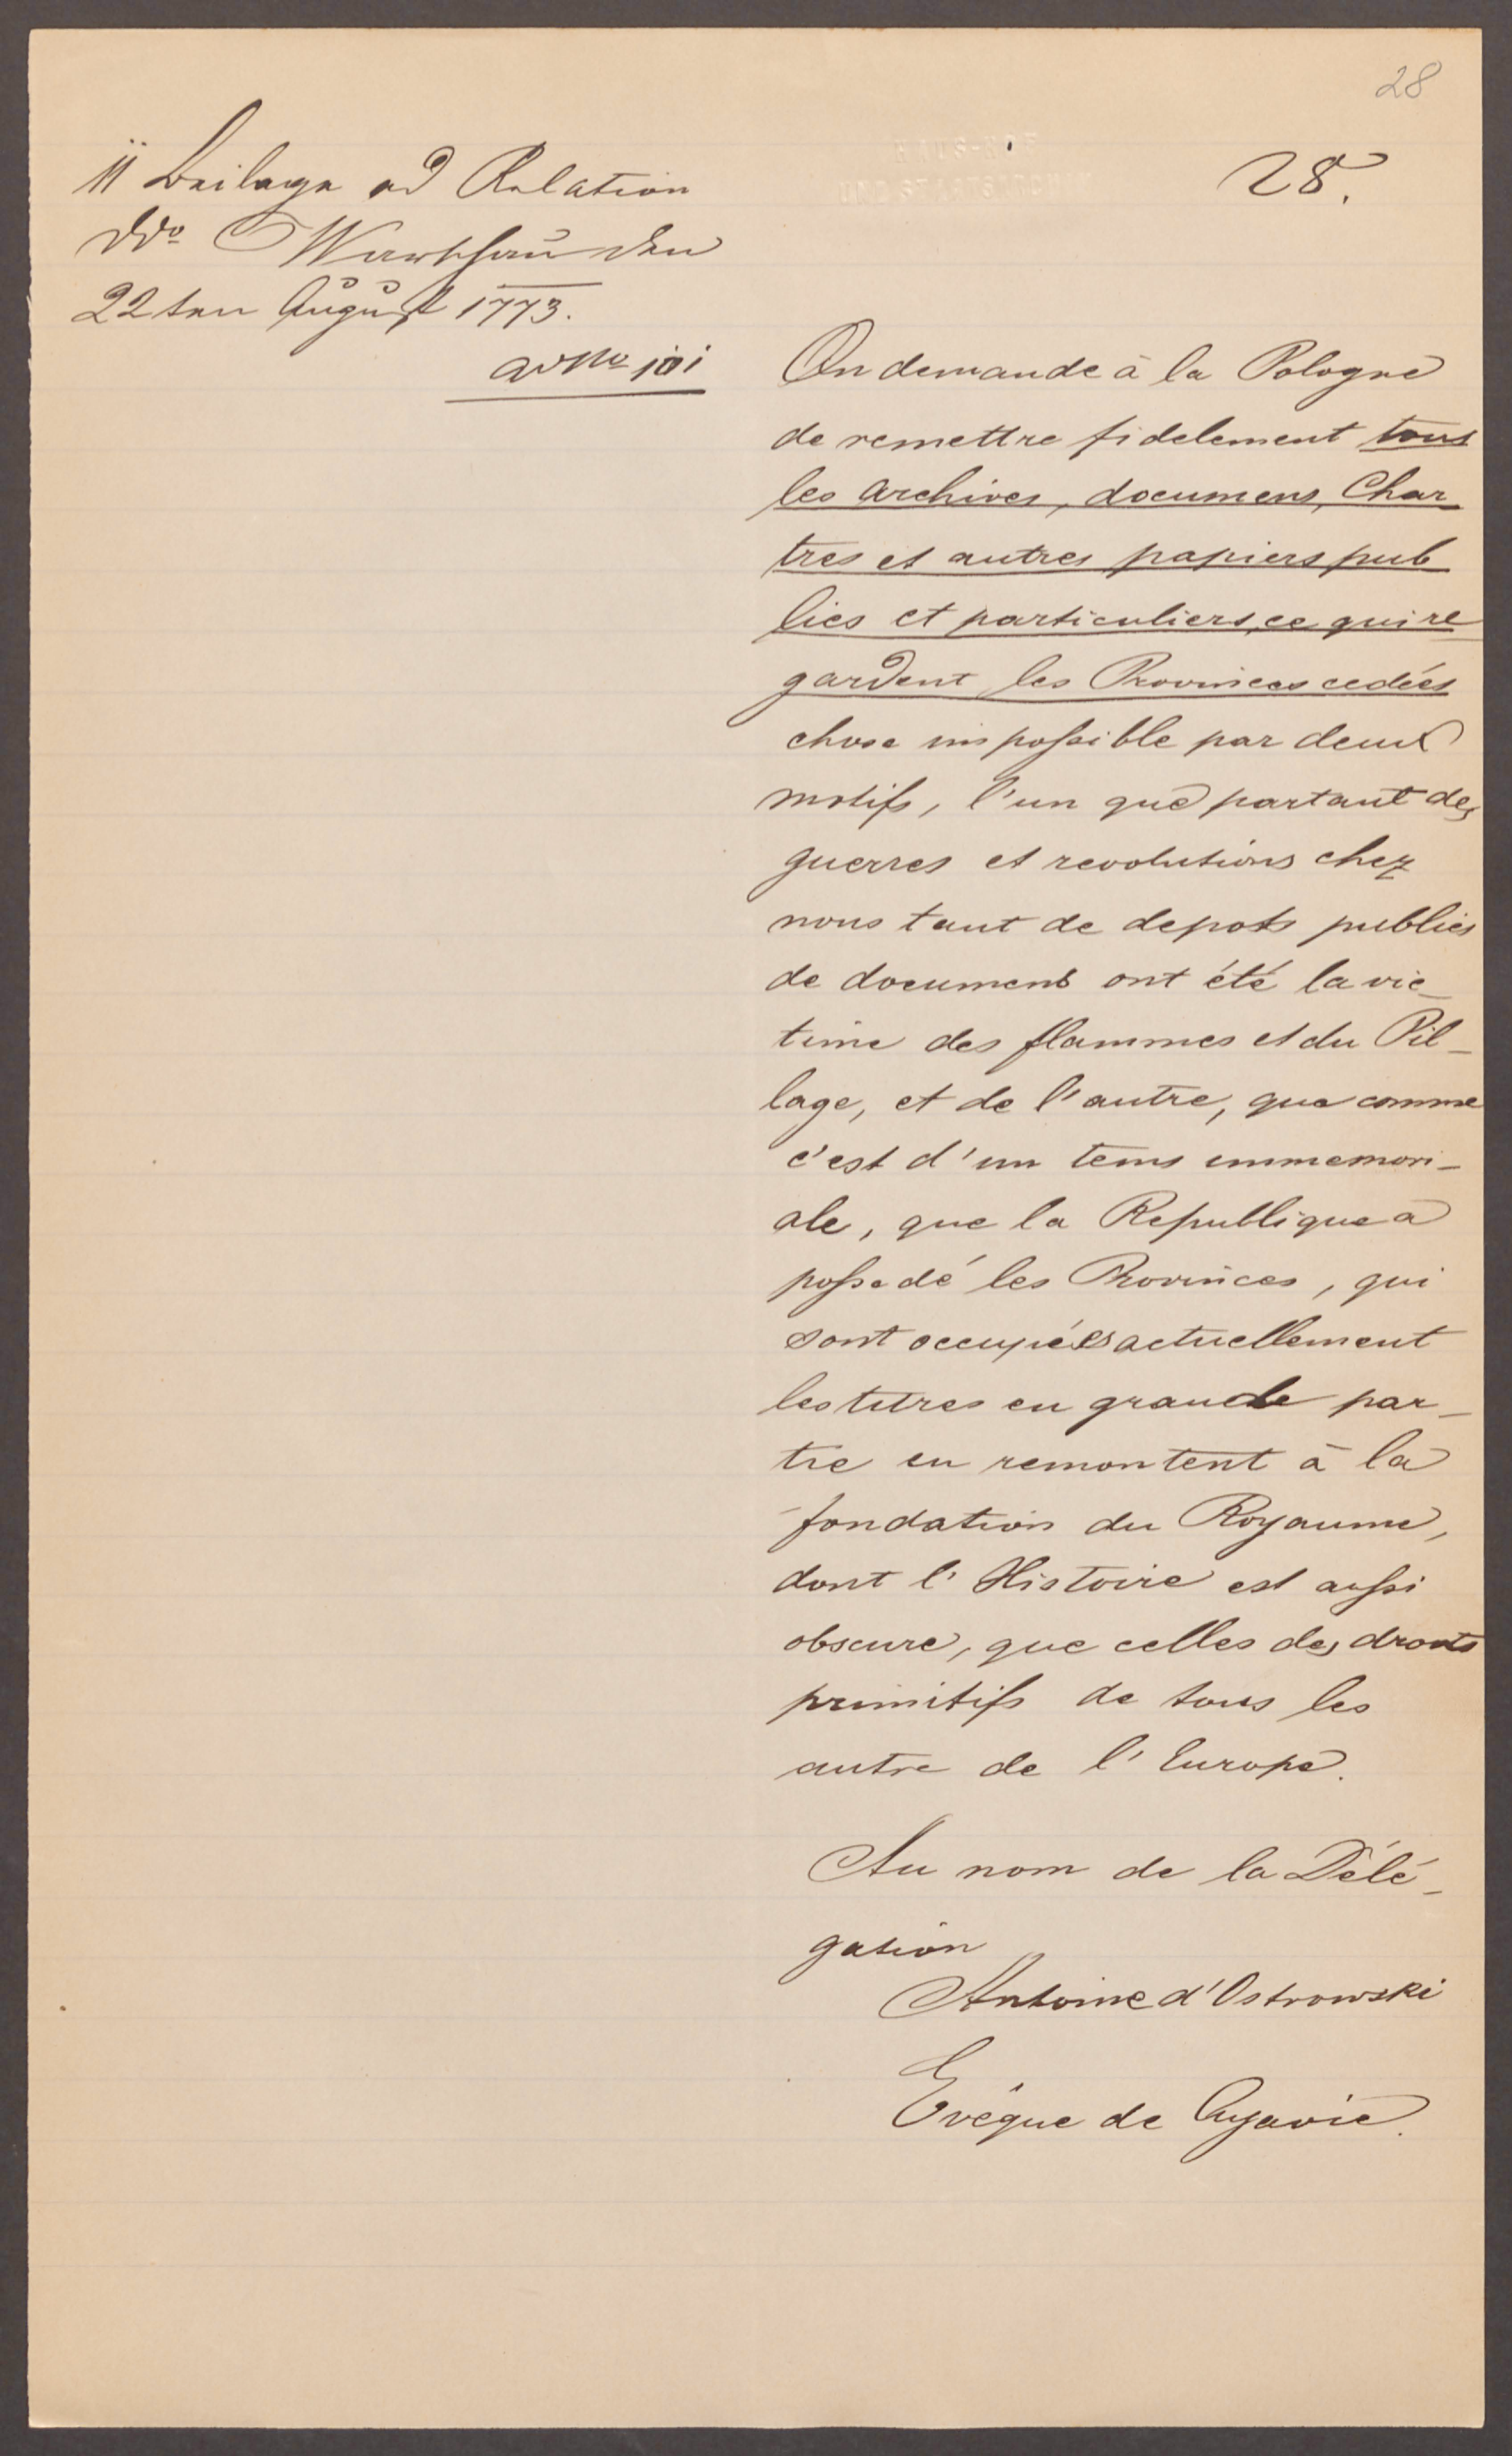 28
28.
ii Beilage ad Relation
ddo Warschau den
22ten August 1773.
ad No
On demande à la Pologne
de remettre fidelement tous
les archives, documens, Char
tres et autres papiers pub
lics et particuliers, ce qui re
gardent les Provinces cedées
chose impossible par deux
motifs, l'un que partant des
guerres et revolutions chez
nous tant de depots publics
de documens ont été la vic_
time des flammes et du Pil_
lage, et de l'autre, que comme
c'est d'un tems immemori_
ale, que la Republique a
possedé les Provinces, qui
sont occupées actuellement
les titres en grande par_
tie en remontent à la
fondation du Royaume,
dont l'Histoire est aussi
obscure, que celles des droits
primitifs de tous les
autre de l'Europe.
Au nom de la Délé_
gation
Antoine d'Ostrowski
Evêque de Cujavie.